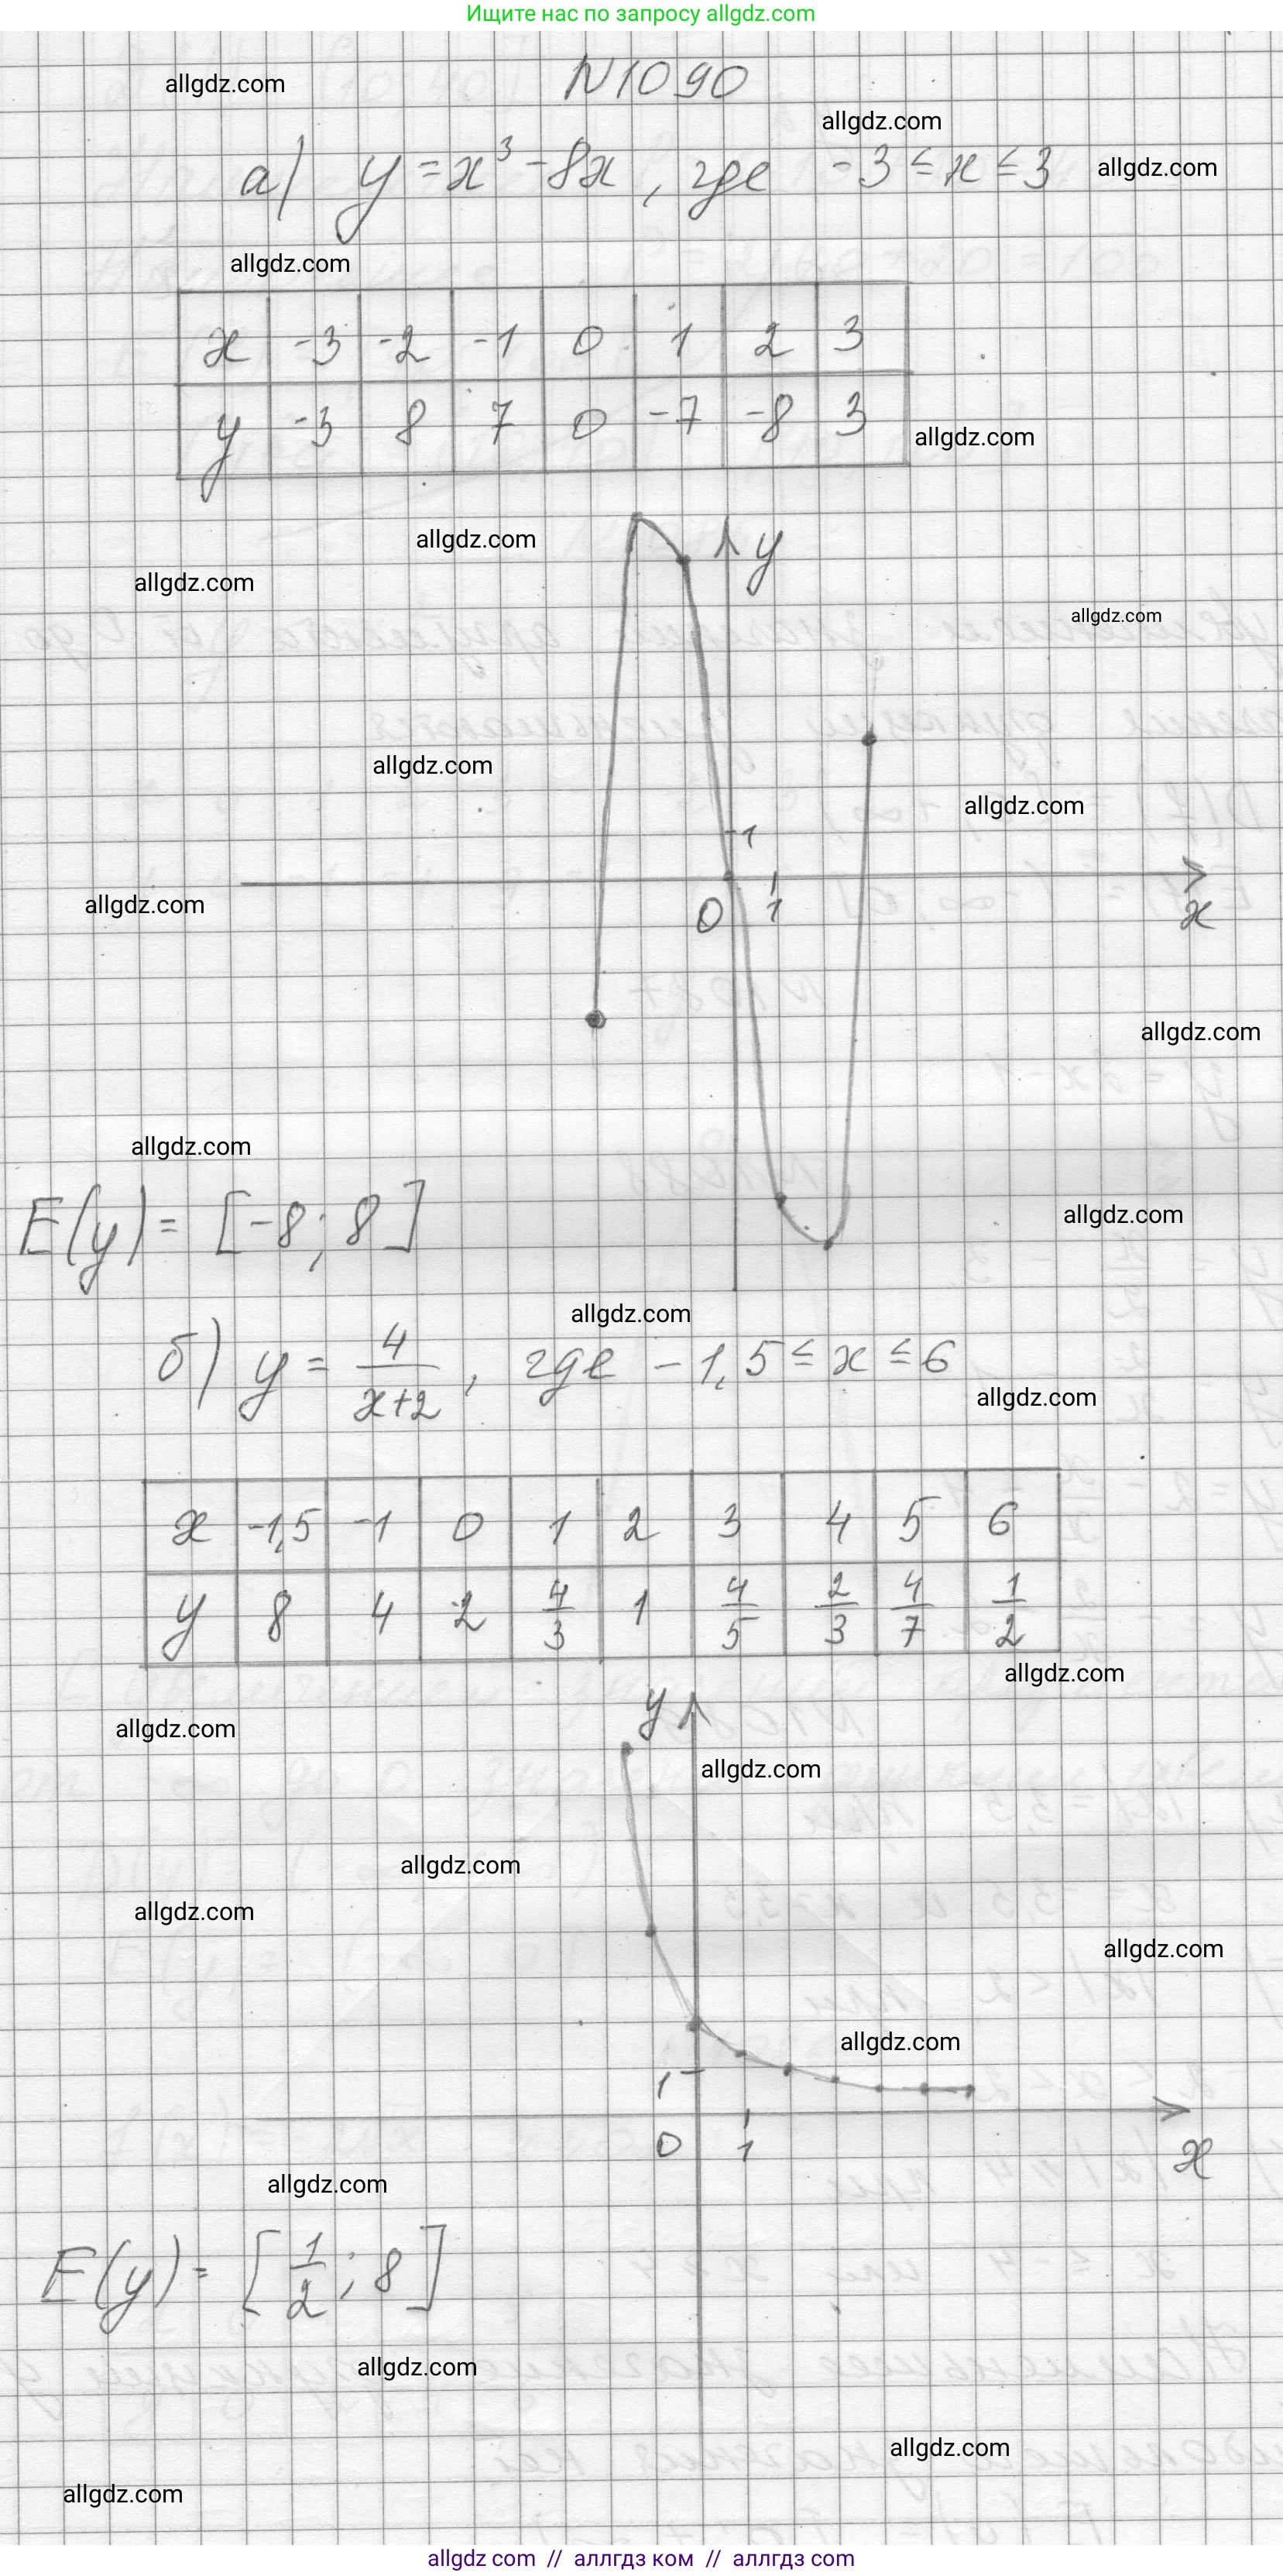 Ищите нас по запросу allgdz.com
N1090
allgdz.com
allgdz.com
а) y = x³ - 8x , где -3 ≤ x ≤ 3
allgdz.com
allgdz.com
x -3 -2 -1 0 1 2 3
y -3 8 7 0 -7 -8 3
allgdz.com
allgdz.com
y
allgdz.com
allgdz.com
allgdz.com
allgdz.com
1
allgdz.com
0 1 x
allgdz.com
allgdz.com
E(y) = [-8; 8]
allgdz.com
allgdz.com
б) y = 4/(x+2) , где -1,5 ≤ x ≤ 6
allgdz.com
x -1,5 -1 0 1 2 3 4 5 6
y 8 4 2 4/3 1 4/5 2/3 4/7 1/2
allgdz.com
y
allgdz.com
allgdz.com
allgdz.com
allgdz.com
allgdz.com
allgdz.com
1
0 1 x
allgdz.com
E(y) = [1/2; 8]
allgdz.com
allgdz.com
allgdz.com
allgdz com // аллгдз ком // аллгдз com